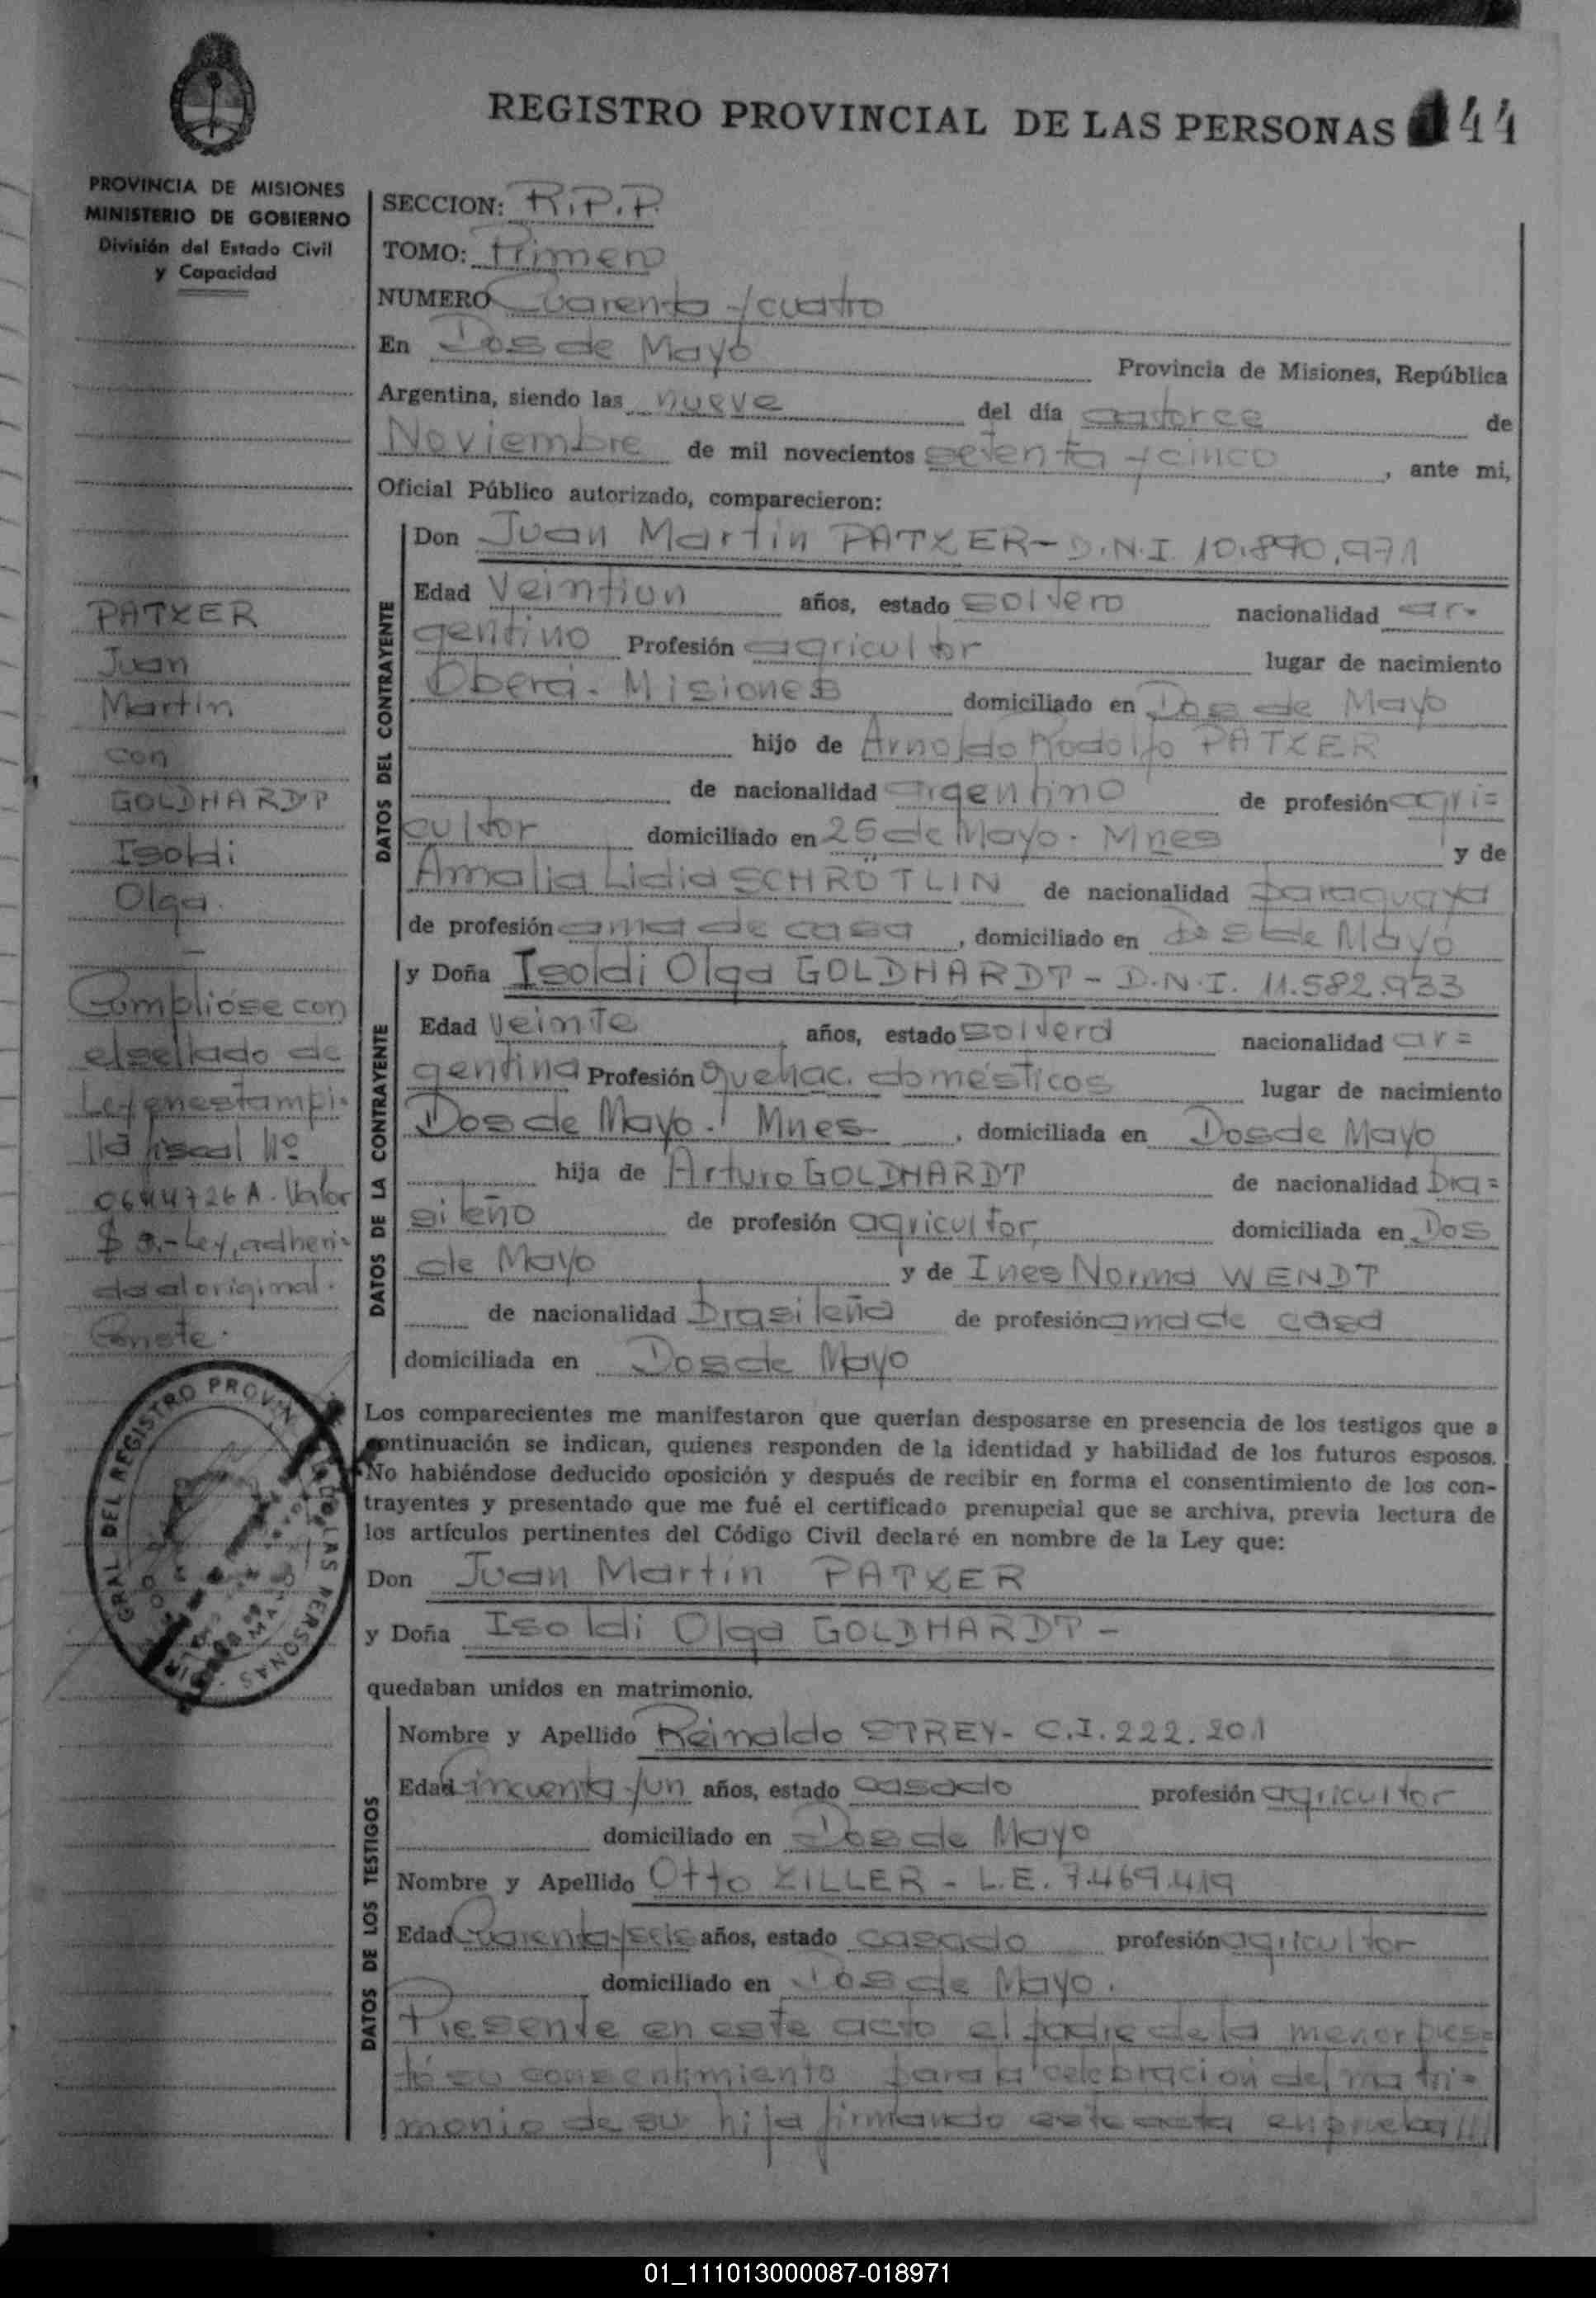 REGISTRO PROVINCIAL DE LAS PERSONAS 144
PROVINCIA DE MISIONES
MINISTERIO DE GOBIERNO
División del Estado Civil
y Capacidad
SECCION: R.P.P.
TOMO: Primero
NUMERO Cuarenta y cuatro
En Dos de Mayo Provincia de Misiones, República
Argentina, siendo las nueve del día catorce de
Noviembre de mil novecientos setenta y cinco, ante mi,
Oficial Público autorizado, comparecieron:
DATOS DEL CONTRAYENTE
Don Juan Martin PATZER - D.N.I. 10.890.971
Edad Veintiun años, estado soltero nacionalidad ar-
gentino Profesión agricultor lugar de nacimiento
Oberá - Misiones domiciliado en Dos de Mayo
hijo de Arnoldo Rodolfo PATZER
de nacionalidad argentino de profesión agri=
cultor domiciliado en 25 de Mayo - Mnes y de
Amalia Lidia SCHRÖTLIN de nacionalidad paraguaya
de profesión ama de casa, domiciliado en Dos de Mayo
DATOS DE LA CONTRAYENTE
y Doña Isoldi Olga GOLDHARDT - D.N.I. 11.582.933
Edad Veinte años, estado soltera nacionalidad ar=
gentina Profesión Quehac. domésticos lugar de nacimiento
Dos de Mayo - Mnes, domiciliada en Dos de Mayo
hija de Arturo GOLDHARDT de nacionalidad bra=
sileño de profesión agricultor, domiciliada en Dos
de Mayo y de Ines Norma WENDT
de nacionalidad brasileña de profesión ama de casa
domiciliada en Dos de Mayo
PATZER
Juan
Martin
con
GOLDHARDT
Isoldi
Olga.
—
Cumplióse con
el sellado de
Ley en estampi-
lla fiscal Nº
0644726 A. Valor
$ Ley, adheri-
do al original.
Conste.
GRAL DEL REGISTRO PROVIN LAS PERSONAS
Los comparecientes me manifestaron que querían desposarse en presencia de los testigos que a
continuación se indican, quienes responden de la identidad y habilidad de los futuros esposos.
No habiéndose deducido oposición y después de recibir en forma el consentimiento de los con-
trayentes y presentado que me fué el certificado prenupcial que se archiva, previa lectura de
los artículos pertinentes del Código Civil declaré en nombre de la Ley que:
Don Juan Martin PATZER
y Doña Isoldi Olga GOLDHARDT -
quedaban unidos en matrimonio.
DATOS DE LOS TESTIGOS
Nombre y Apellido Reinaldo STREY - C.I. 222.201
Edad Cincuenta y un años, estado casado profesión agricultor
domiciliado en Dos de Mayo
Nombre y Apellido Otto ZILLER - L.E. 7.469.419
Edad Cuarenta y seis años, estado casado profesión agricultor
domiciliado en Dos de Mayo.
Presente en este acto el padre de la menor pres=
tó su consentimiento para la celebración del matri=
monio de su hija firmando este acta en prueba
01_111013000087-018971